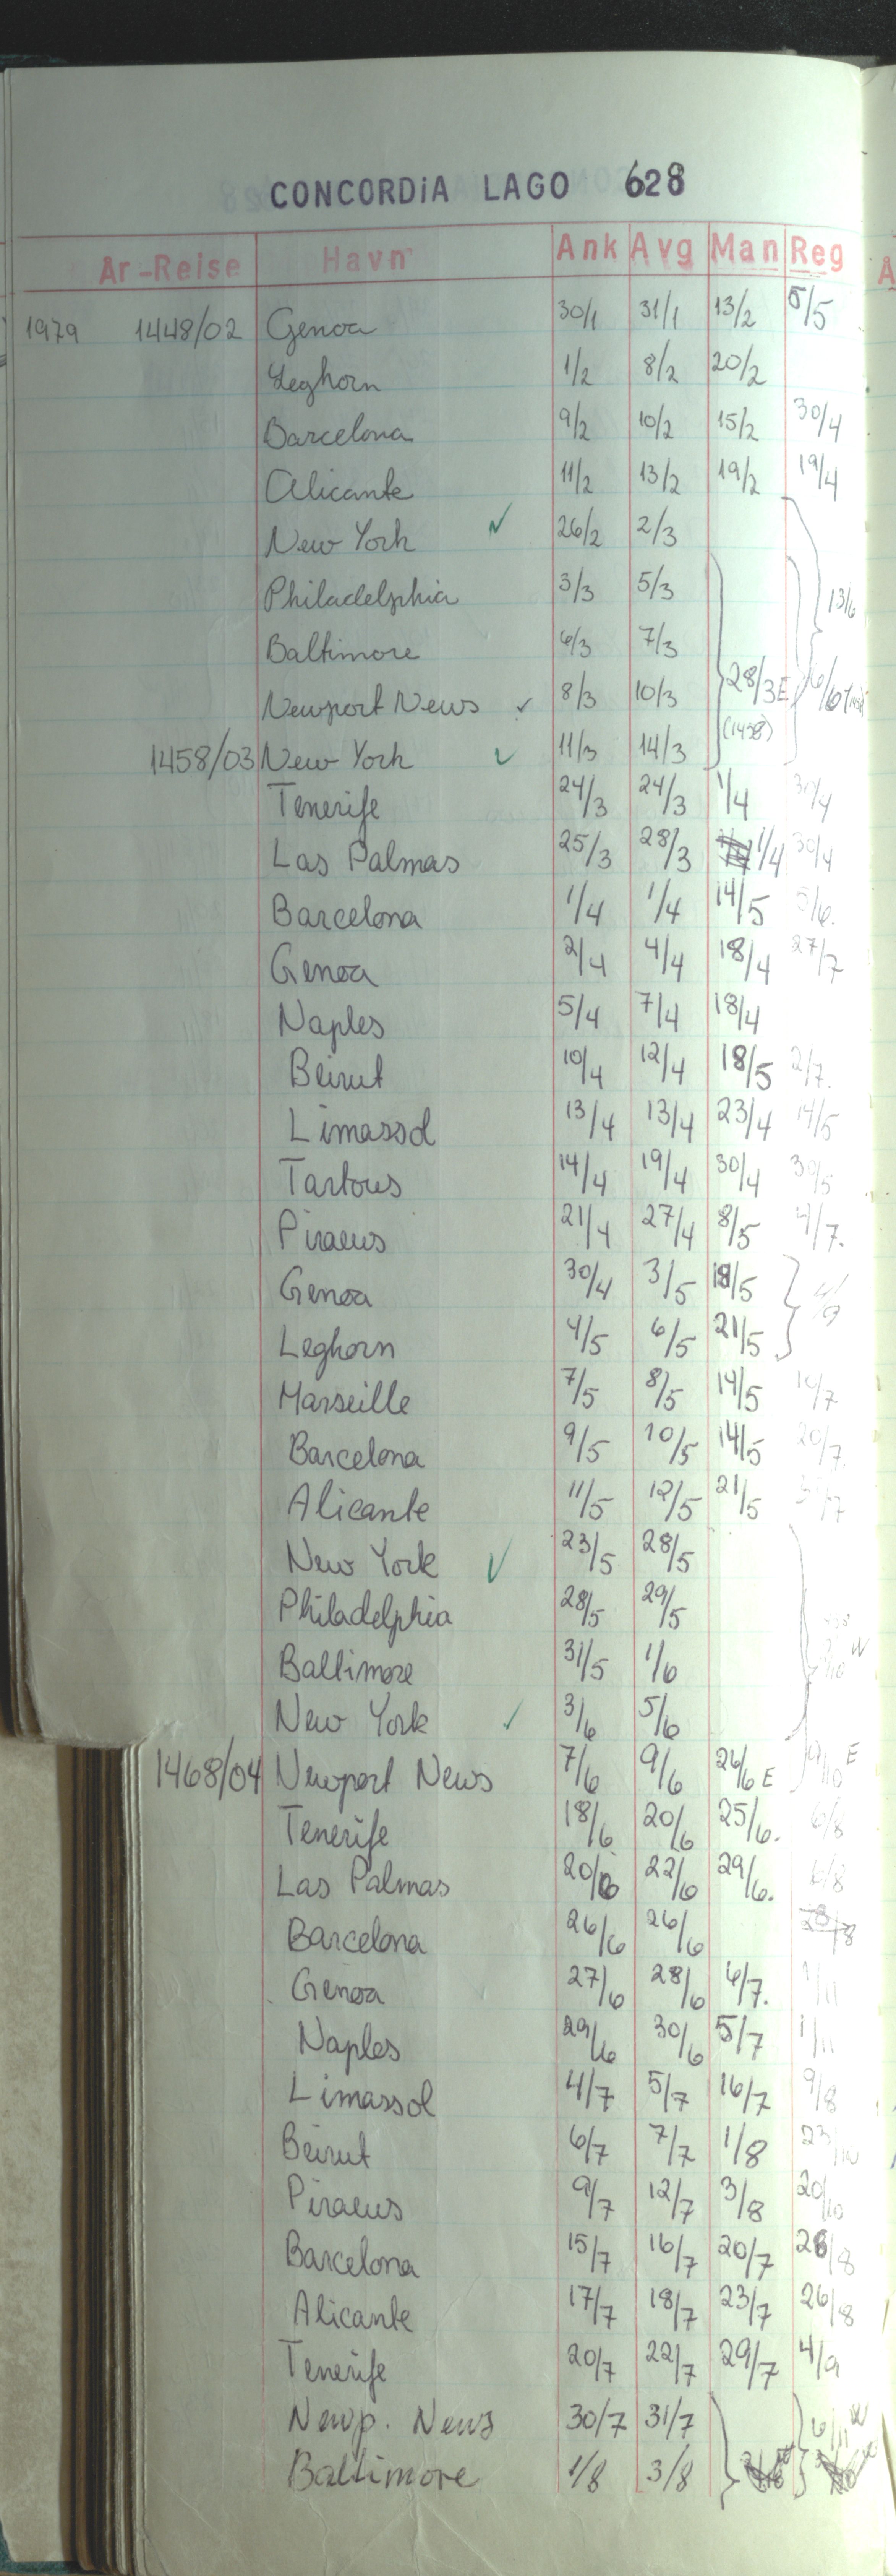 CONCORDiA LAGO 628
År-Reise Havn Ank Avg Man Reg
1979 1448/02 Genoa 30/1 31/1 13/2 5/5
Leghorn 1/2 8/2 20/2
Barcelona 9/2 10/2 15/2 30/4
Alicante 11/2 13/2 19/2 19/4
New York ✓ 26/2 2/3
Philadelphia 3/3 5/3 13/6
Baltimore 6/3 7/3
Newport News ✓ 8/3 10/3 28/3 E
(1458)
1458/03 New York ✓ 11/3 14/3
Tenerife 24/3 24/3 1/4 30/4
Las Palmas 25/3 28/3 1/4 30/4
Barcelona 1/4 1/4 14/5 5/6.
Genoa 2/4 4/4 18/4 27/7
Naples 5/4 7/4 18/4
Beirut 10/4 12/4 18/5 2/7.
Limassol 13/4 13/4 23/4 14/5
Tartous 14/4 19/4 30/4 30/5
Piraeus 21/4 27/4 8/5 4/7.
Genoa 30/4 3/5 18/5 4/9
Leghorn 4/5 6/5 21/5
Marseille 7/5 8/5 14/5 10/7
Barcelona 9/5 10/5 14/5 20/7
Alicante 11/5 12/5 21/5
New York ✓ 23/5 28/5
Philadelphia 28/5 29/5
Baltimore 31/5 1/6 W
New York ✓ 3/6 5/6
1468/04 Newport News 7/6 9/6 26/6 E 9/10 E
Tenerife 18/6 20/6 25/6. 6/8
Las Palmas 20/6 22/6 29/6. 6/8
Barcelona 26/6 26/6 28/8
Genoa 27/6 28/6 6/7. 1/11
Naples 29/6 30/6 5/7 1/11
Limassol 4/7 5/7 16/7 9/8
Beirut 6/7 7/7 1/8 23/10
Piraeus 9/7 12/7 3/8 20/10
Barcelona 15/7 16/7 20/7 26/8
Alicante 17/7 18/7 23/7 26/8
Tenerife 20/7 22/7 29/7 4/9
Newp. News 30/7 31/7 6/11 W
Baltimore 1/8 3/8